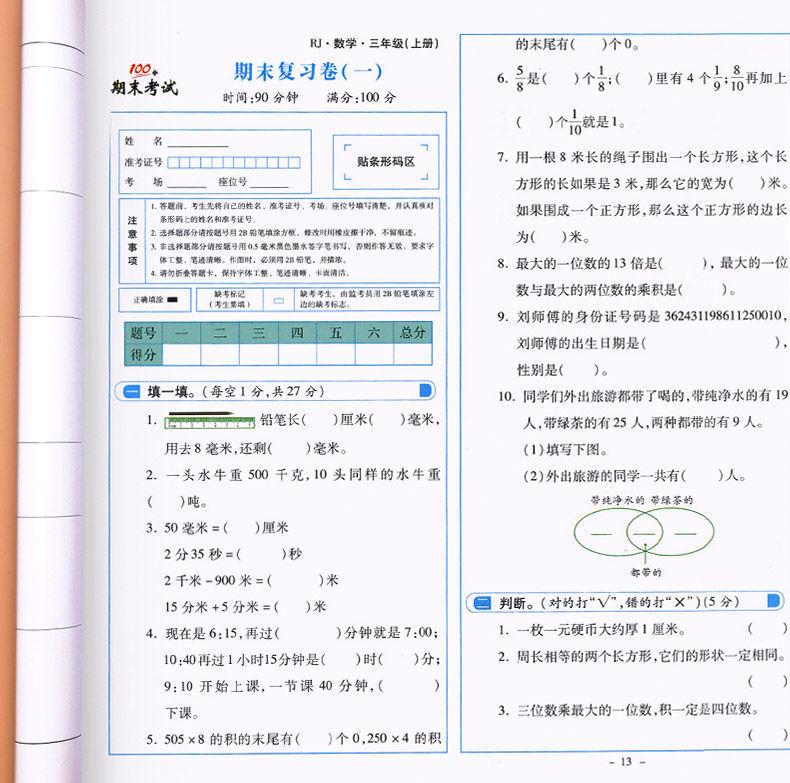 RJ·数学·三年级(上册)
100分
期末考试
期末复习卷(一)
时间:90分钟 满分:100分
姓 名
准考证号
考 场 座位号
贴条形码区
注意事项
1. 答题前,考生先将自己的姓名、准考证号、考场、座位号填写清楚,并认真核对
条形码上的姓名和准考证号。
2. 选择题部分请按题号用2B铅笔填涂方框,修改时用橡皮擦干净,不留痕迹。
3. 非选择题部分请按题号用0.5毫米黑色墨水签字笔书写,否则作答无效。要求字
体工整、笔迹清晰。作图时,必须用2B铅笔,并描浓。
4. 请勿折叠答题卡,保持字体工整、笔迹清晰、卡面清洁。
正确填涂
缺考标记
(考生禁填)
缺考考生,由监考员用2B铅笔填涂左
边的缺考标志。
题号 一 二 三 四 五 六 总分
得分
一 填一填。(每空1分,共27分)
1. 铅笔长( )厘米( )毫米,
用去8毫米,还剩( )毫米。
2. 一头水牛重500千克,10头同样的水牛重
( )吨。
3. 50毫米=( )厘米
2分35秒=( )秒
2千米-900米=( )米
15分米+5分米=( )米
4. 现在是6:15,再过( )分钟就是7:00;
10:40再过1小时15分钟是( )时( )分;
9:10开始上课,一节课40分钟,( )
下课。
5. 505×8的积的末尾有( )个0,250×4的积
的末尾有( )个0。
6. 5/8是( )个1/8;( )里有4个1/9;8/10再加上
( )个1/10就是1。
7. 用一根8米长的绳子围出一个长方形,这个长
方形的长如果是3米,那么它的宽为( )米。
如果围成一个正方形,那么这个正方形的边长
为( )米。
8. 最大的一位数的13倍是( ),最大的一位
数与最大的两位数的乘积是( )。
9. 刘师傅的身份证号码是362431198611250010,
刘师傅的出生日期是( ),
性别是( )。
10. 同学们外出旅游都带了喝的,带纯净水的有19
人,带绿茶的有25人,两种都带的有9人。
(1)填写下图。
(2)外出旅游的同学一共有( )人。
带纯净水的 带绿茶的
都带的
二 判断。(对的打“√”,错的打“×”)(5分)
1. 一枚一元硬币大约厚1厘米。 ( )
2. 周长相等的两个长方形,它们的形状一定相同。
( )
3. 三位数乘最大的一位数,积一定是四位数。
( )
- 13 -